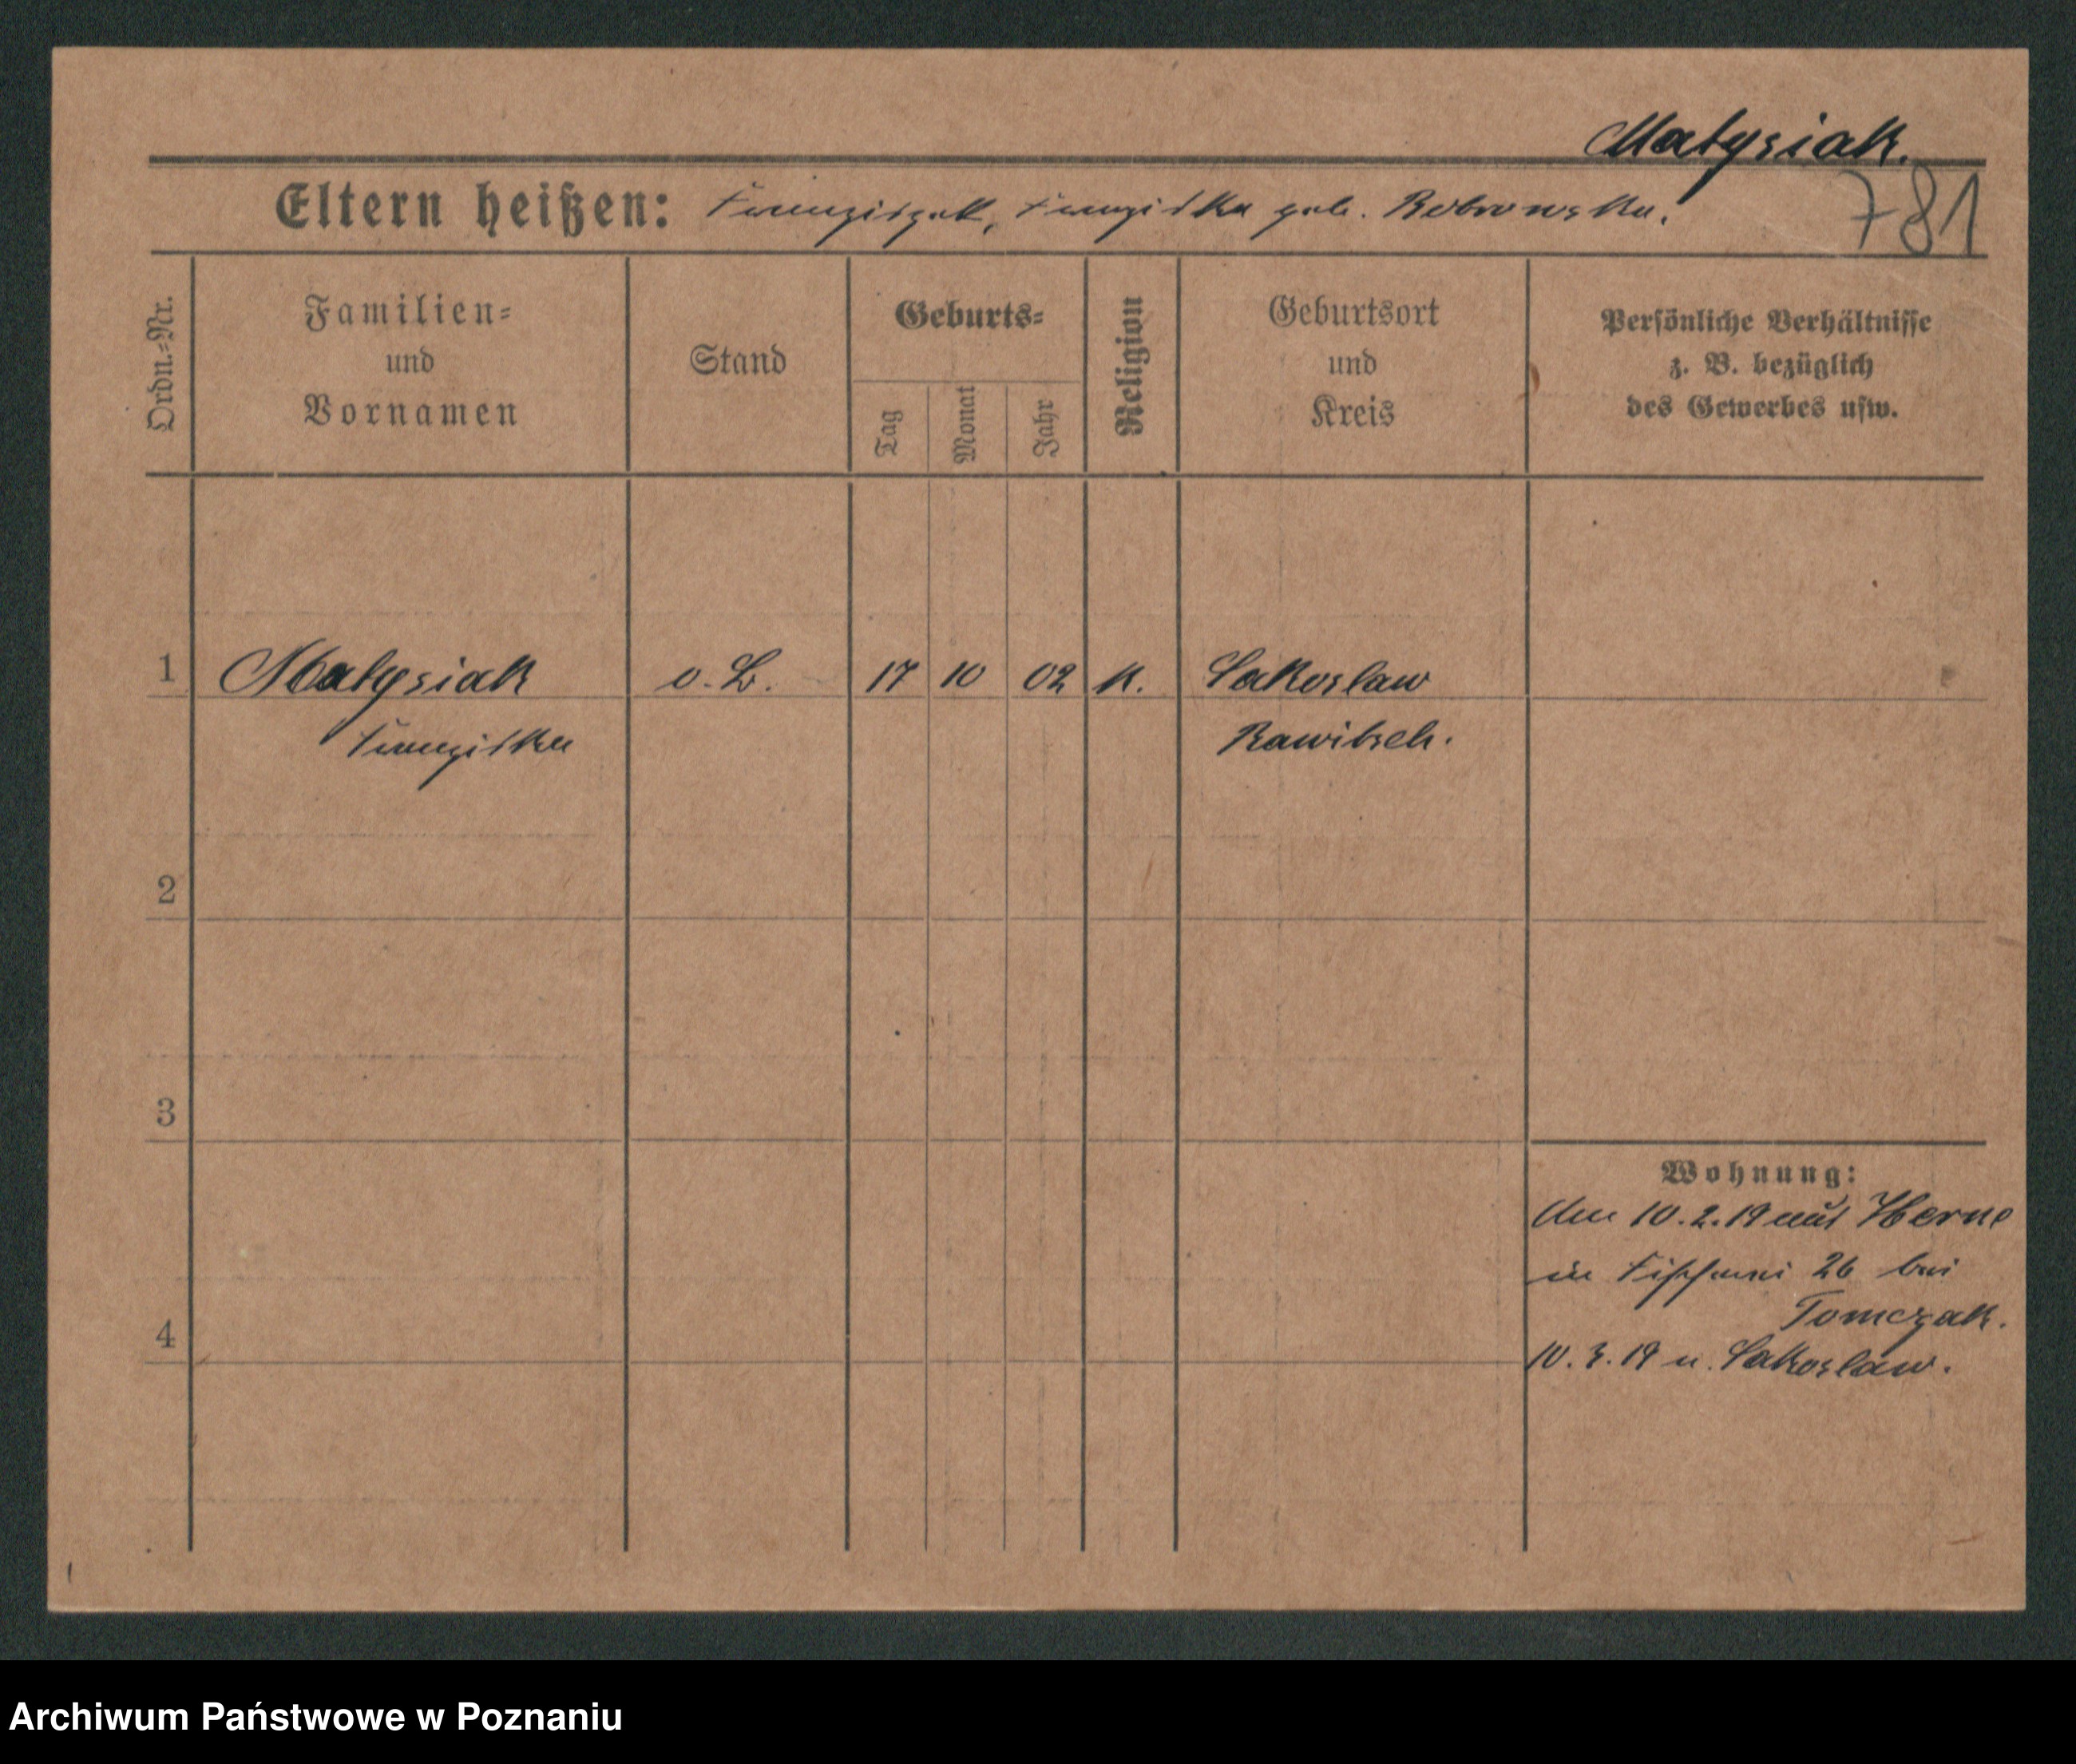 Matysiak.
Eltern heißen: Franziszek, Franziska geb. Bobrowska.
781
Ordn.-Nr.
Familien-
und
Vornamen
Stand
Geburts-
Tag
Monat
Jahr
Religion
Geburtsort
und
Kreis
Persönliche Verhältnisse
z. B. bezüglich
des Gewerbes usw.
1 Matysiak o. B. 17 10 02 K. Sakoslaw
Franziska Rawitsch.
2
3
4
Wohnung:
Am 10.2.19 aus Herne
in 26 bei
Tomczak.
10.3.19 n. Sakoslaw.
Archiwum Państwowe w Poznaniu